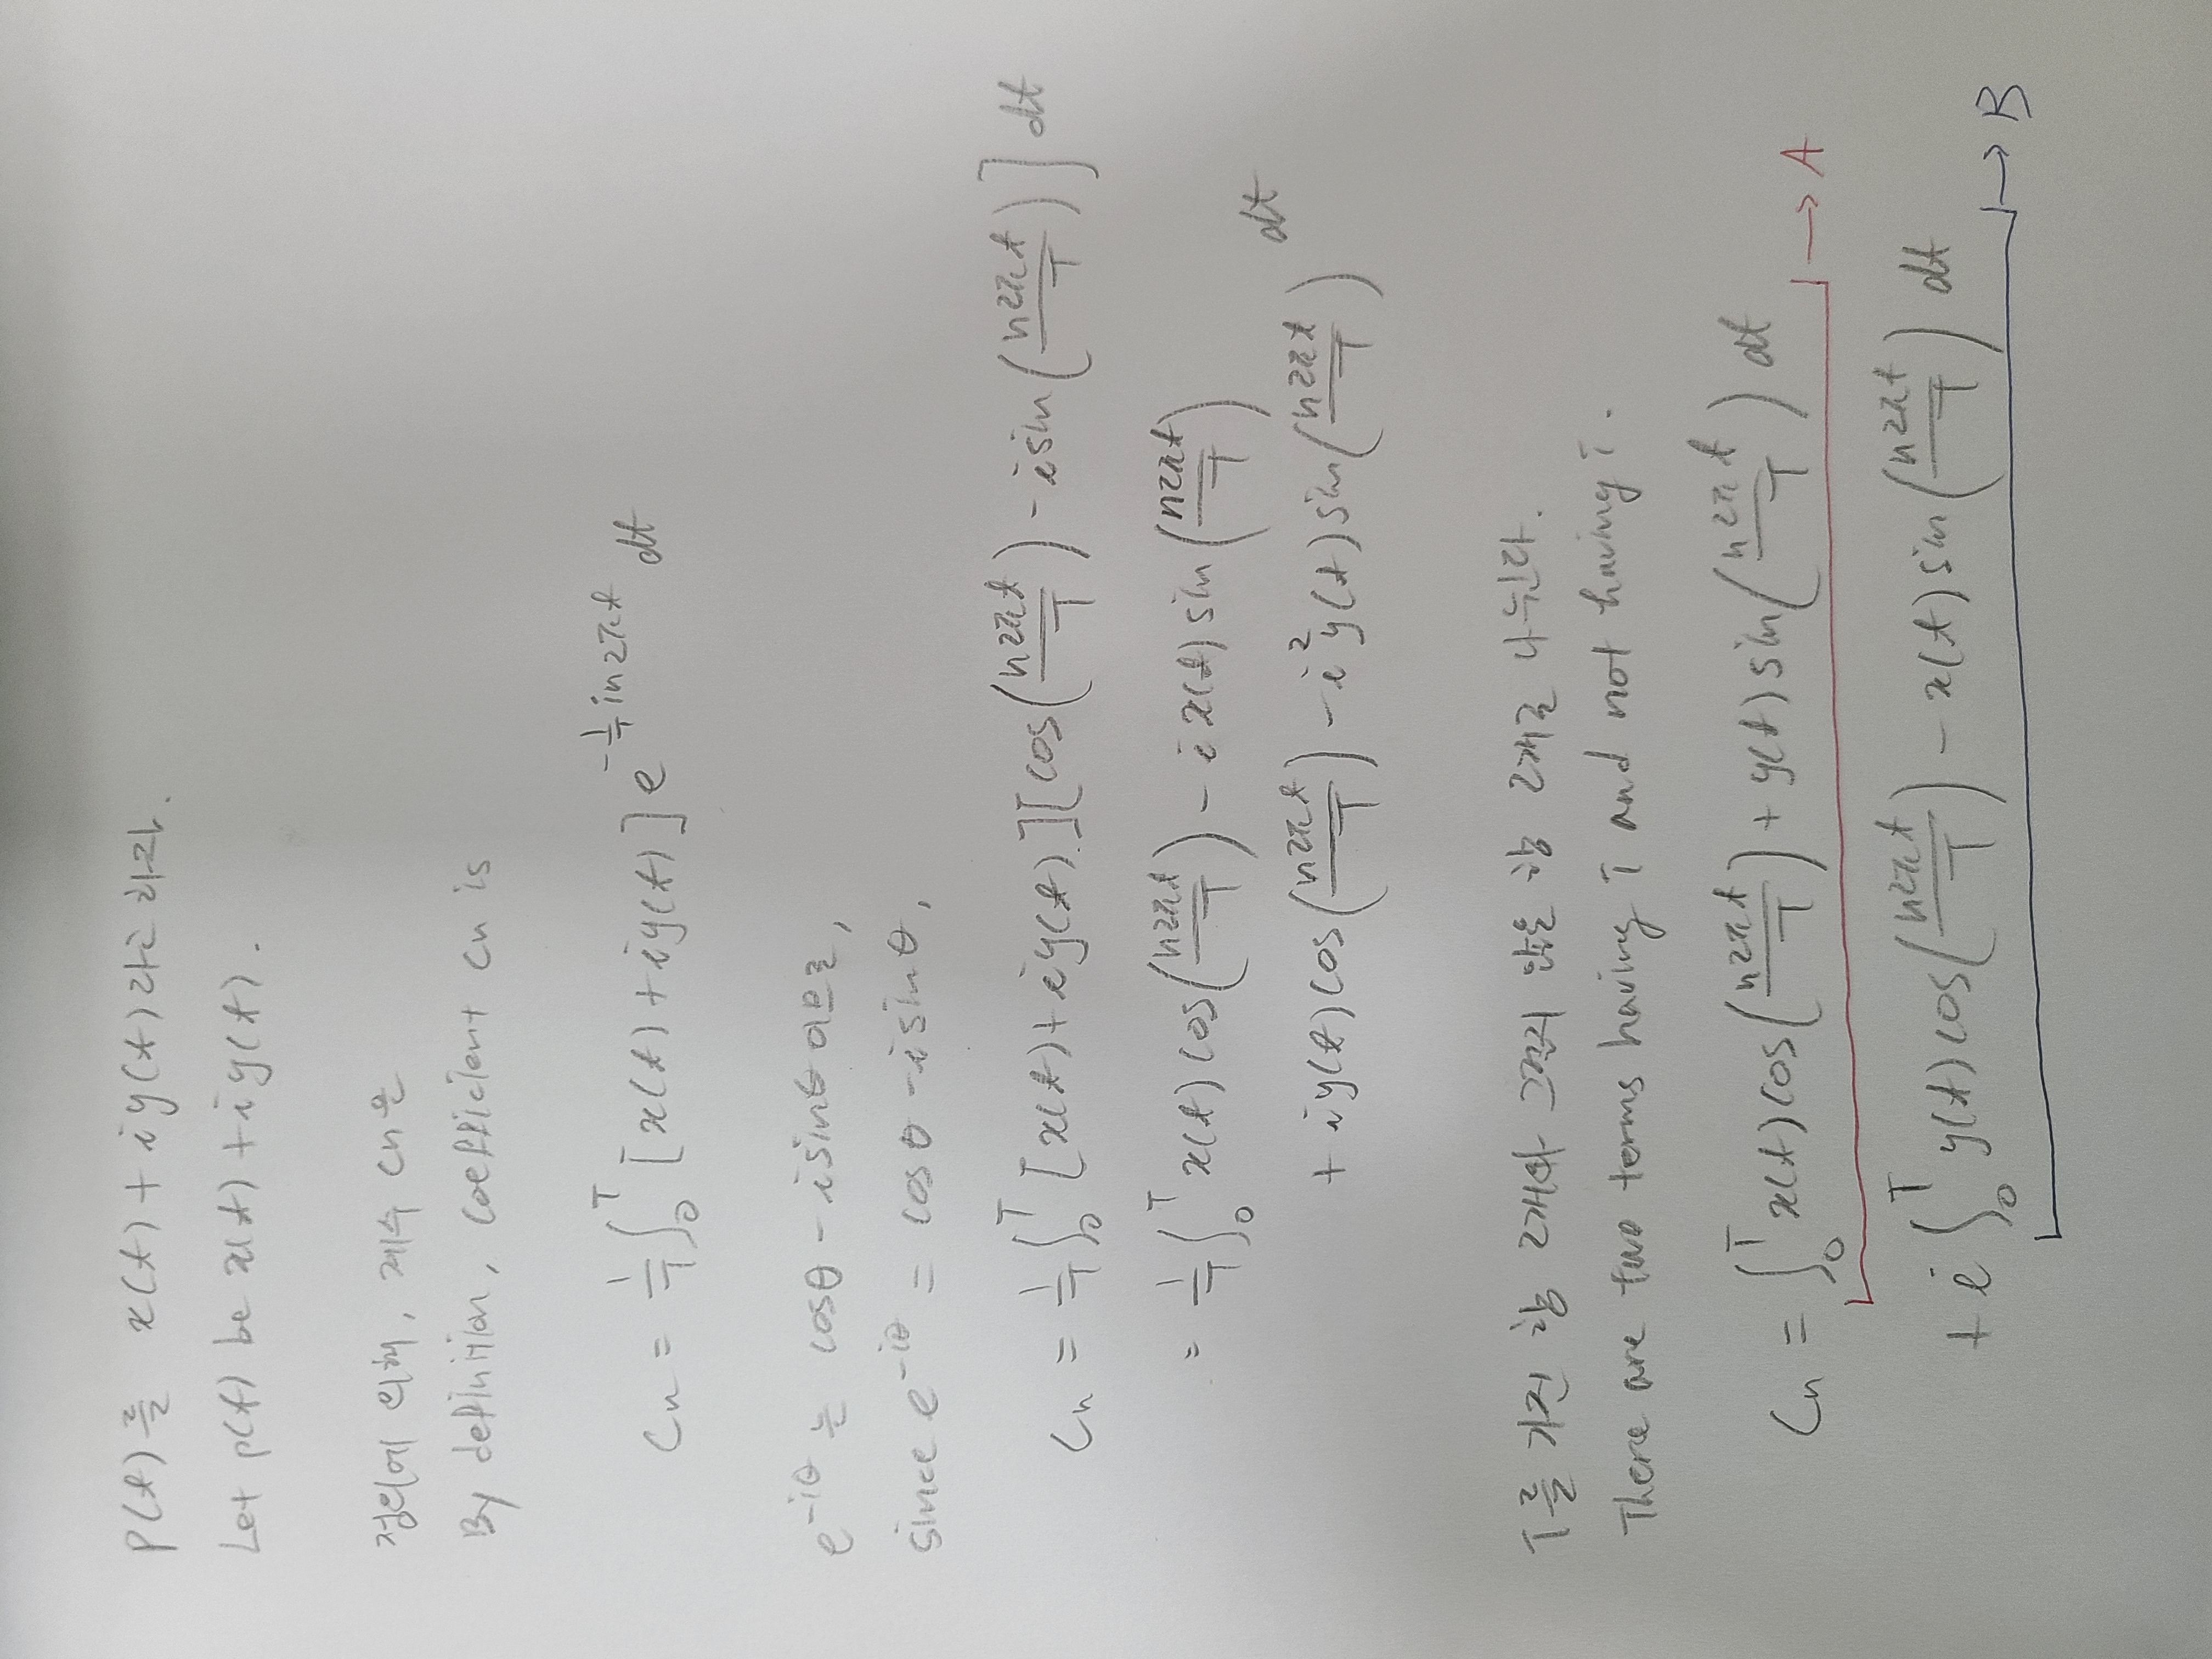 p(t)를 x(t)+iy(t)라고 하자.
Let p(t) be x(t)+iy(t).
정의에 의해, 계수 Cn은
By definition, coefficient Cn is
Cn = 1/T ∫₀ᵀ [x(t)+iy(t)] e^(-1/T in2πt) dt
e^(-iθ) 는 cosθ - isinθ 이므로,
since e^(-iθ) = cosθ - isinθ,
Cn = 1/T ∫₀ᵀ [x(t)+iy(t)][cos(n2πt/T) - isin(n2πt/T)] dt
= 1/T ∫₀ᵀ x(t)cos(n2πt/T) - ix(t)sin(n2πt/T)
+ iy(t)cos(n2πt/T) - i²y(t)sin(n2πt/T) dt
i를 가진 항 2개와 그렇지 않은 항 2개로 나뉜다.
There are two terms having i and not having i.
Cn = ∫₀ᵀ x(t)cos(n2πt/T) + y(t)sin(n2πt/T) dt → A
+ i ∫₀ᵀ y(t)cos(n2πt/T) - x(t)sin(n2πt/T) dt → B